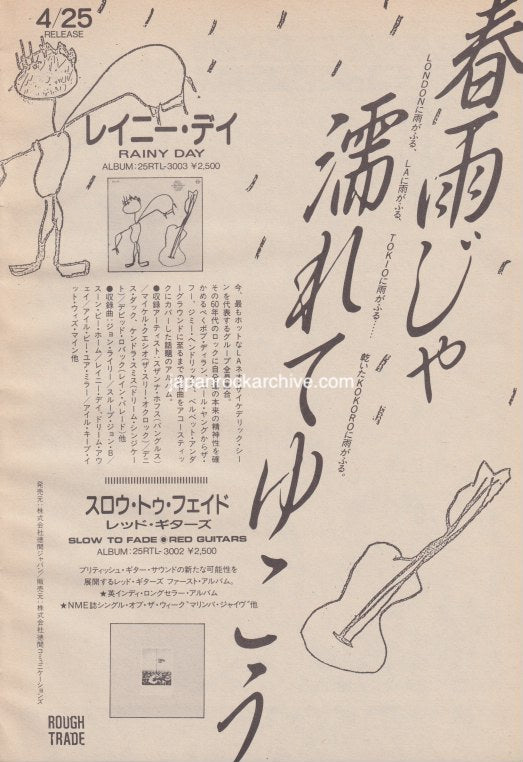 4/25
RELEASE
レイニー・デイ
RAINY DAY
ALBUM:25RTL-3003 ¥2,500
春雨じゃ
濡れてゆこう
LONDONに雨がふる、
LAに雨がふる、
TOKIOに雨がふる……
乾いたKOKOROに雨がふる。
今、最もホットなLAネオ・サイケデリック・シー
ンを代表するグループ全員集合。
その60年代のロックに自分達の本来の精神性を確
かめるべくボブ・ディラン、ニール・ヤングからザ・
フー、ジミー・ヘンドリックス、ベルベット・アンダ
ーグラウンドに至るまでの名曲をアコースティッ
クにカバーした話題のアルバム。
●収録アーティスト:スザンナ・ホフス(バングルス)
/マイケル・クエシオ(ザ・スリー・オクロック)/デニ
ス・ダック、ケンドラ・スミス(ドリーム・シンジケー
ト)/デビッド・ロバック(レイン・パレード)他
●収録曲:ジョン・ライリー/スループ・ジョン・B/
スーン・ビー・ホーム/レイニー・デイ、ドリーム・アウ
ェイ/アイル・ビー・ユア・ミラー/アイル・キープ・イ
ット・ウィズ・マイン他
japanrockarchive.com
スロウ・トゥ・フェイド
レッド・ギターズ
SLOW TO FADE●RED GUITARS
ALBUM:25RTL-3002 ¥2,500
ブリティッシュ・ギター・サウンドの新たな可能性を
展開するレッド・ギターズ ファースト・アルバム。
★英インディ・ロングセラー・アルバム
★NME誌シングル・オブ・ザ・ウィーク"マリンバ・ジャイヴ"他
発売元:株式会社徳間ジャパン/販売元:株式会社徳間コミュニケーションズ
ROUGH
TRADE